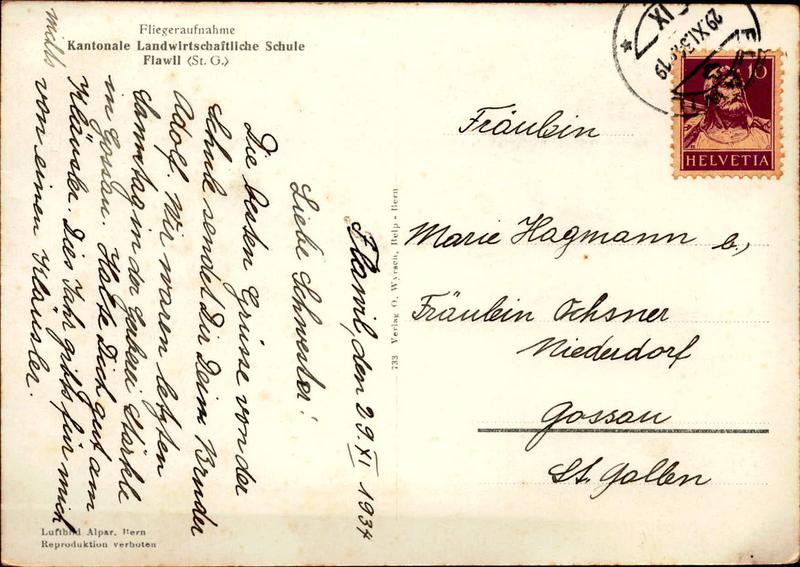 Fliegeraufnahme
Kantonale Landwirtschaftliche Schule
Flawil (St. G.)
Flawil, den 29. XI 1934
Liebe Schwester!
Die besten Grüsse von der
Schule sendet Dir Deim Bruder
Adolf. Wir waren letzten
Samstag in der Stärkle
in Gossau. Halte Dich gut am
Kläusler. Dies Jahr gibts für mich
nichts
von einen Kläusler.
Luftbild Alpar, Bern
Reproduktion verboten
733 Verlag O. Wyrsch, Belp - Bern
29.XI.34.19
IX
10
HELVETIA
Fräulein
Marie Hagmann b.,
Fräulein Ochsner
Niederdorf
Gossau
St. Gallen